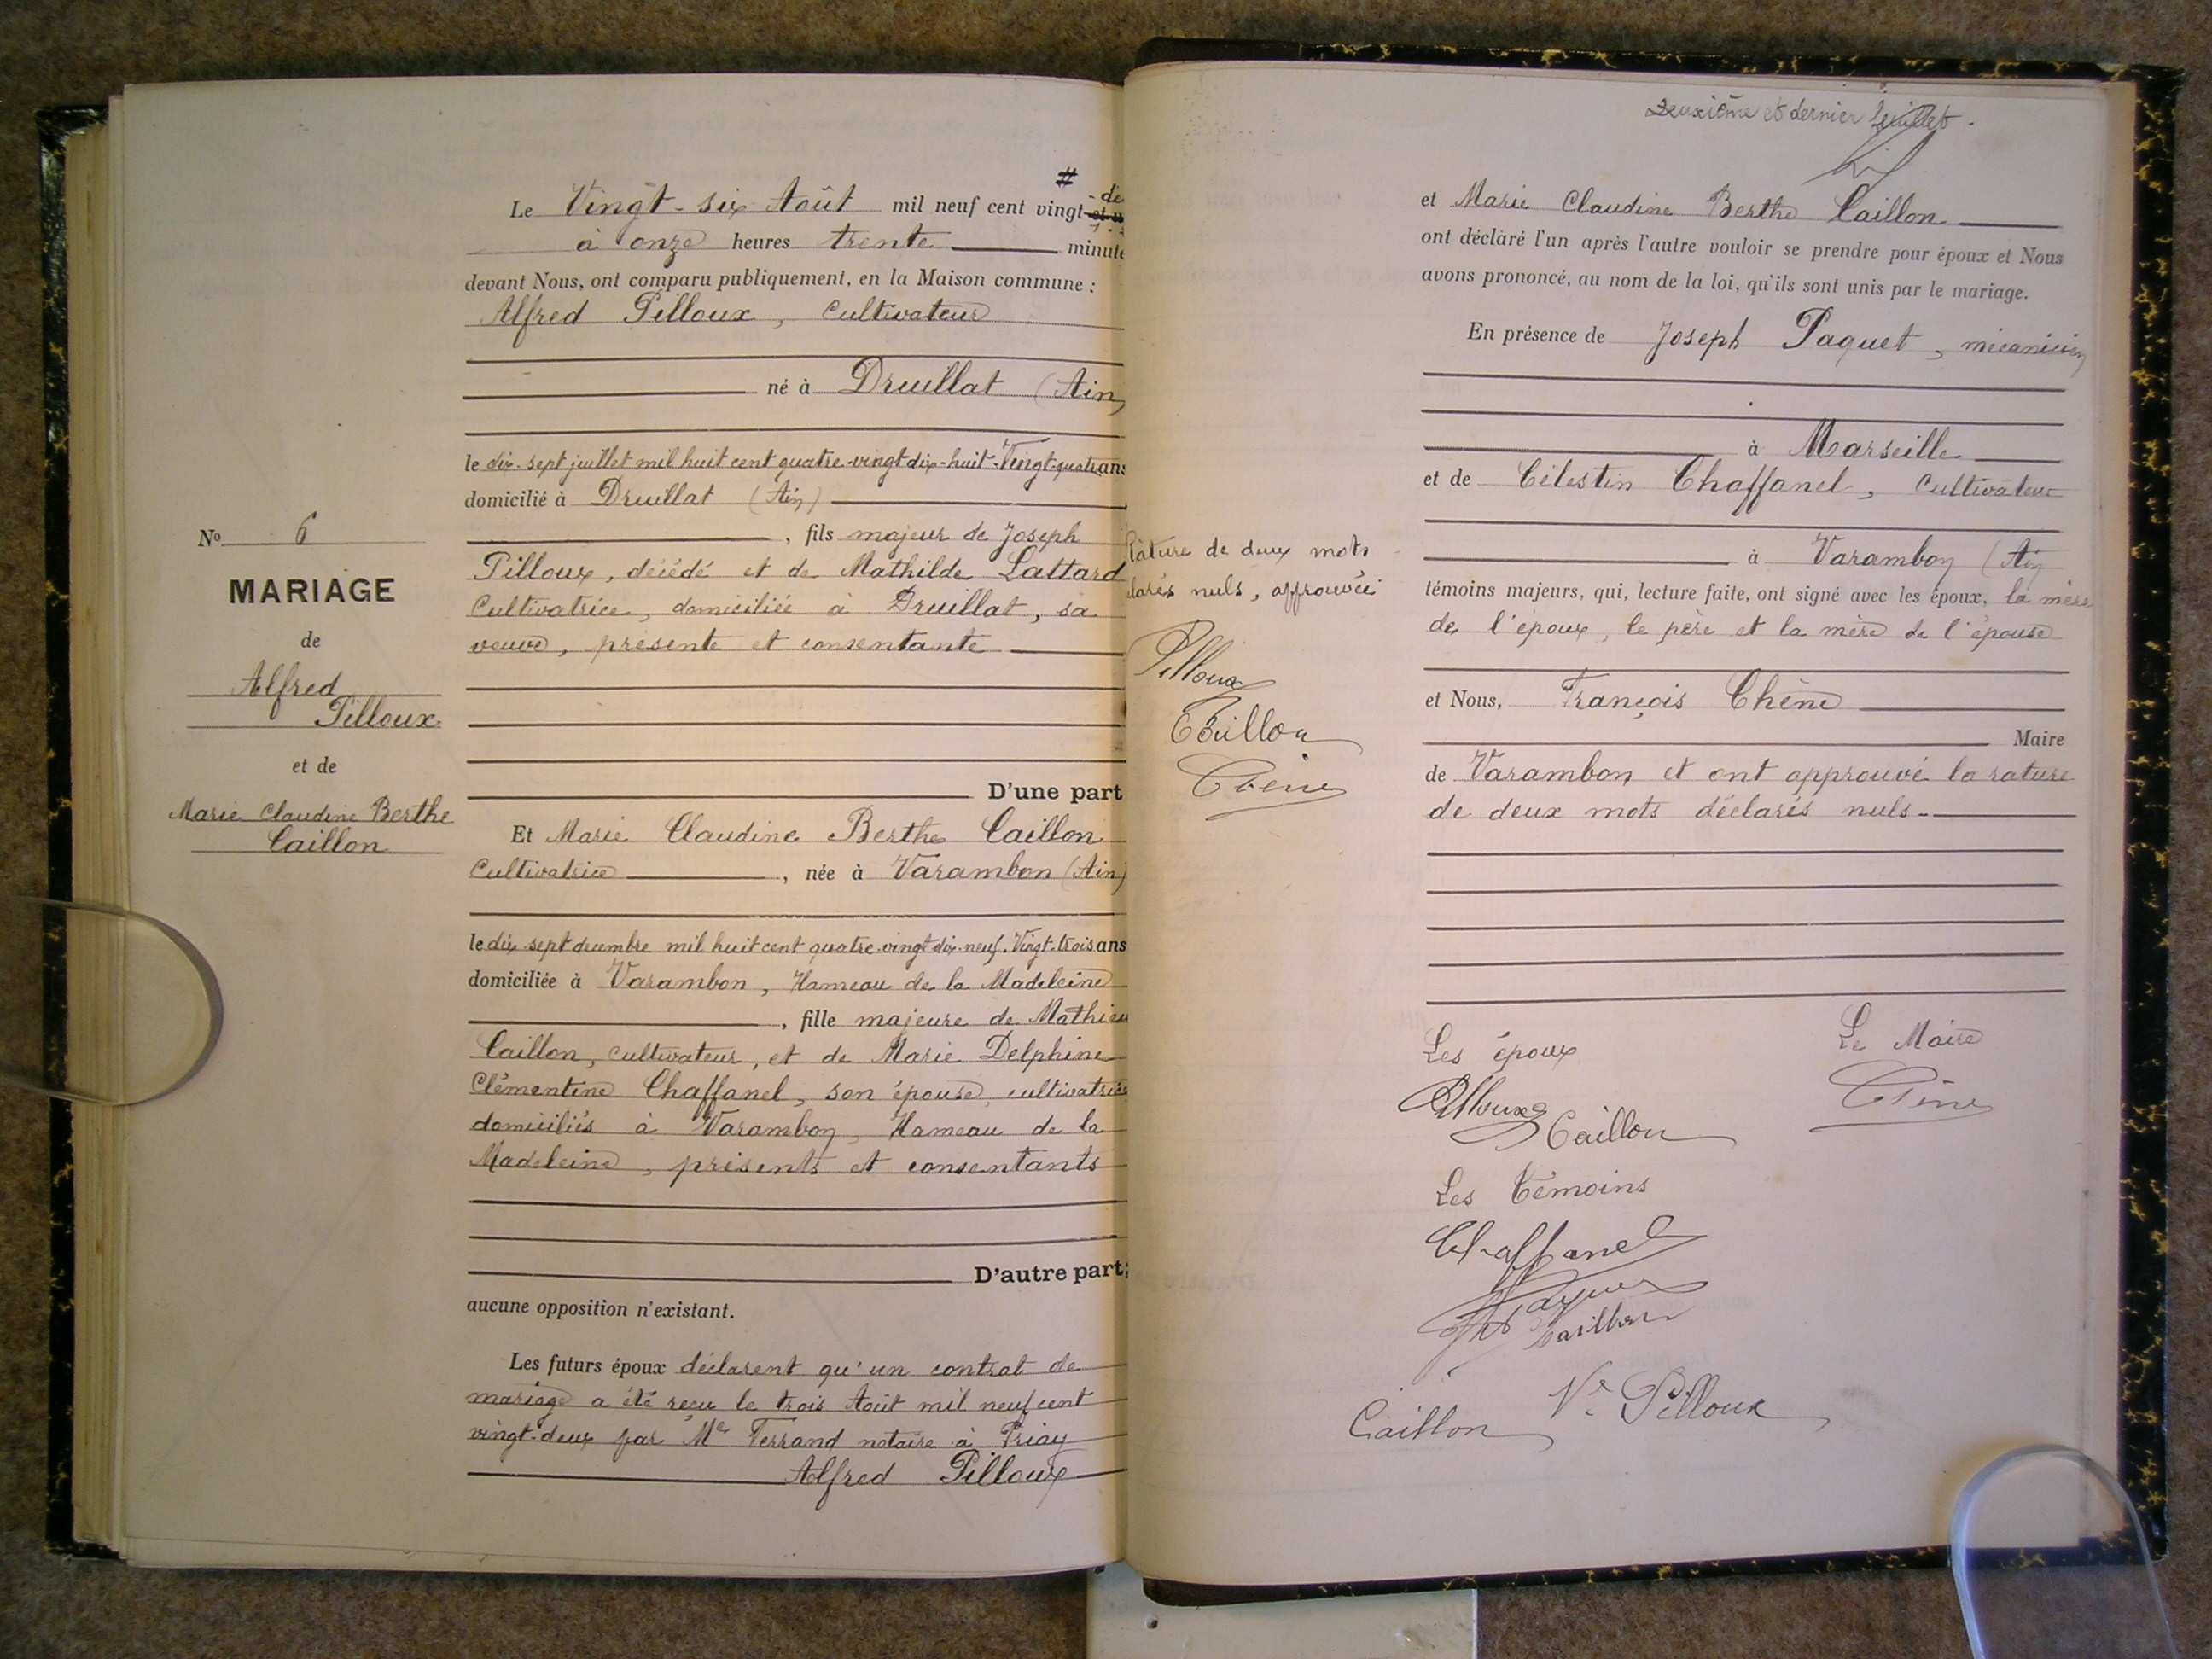 #
Le Vingt-six Août mil neuf cent vingt-de
à onze heures trente minute
devant Nous, ont comparu publiquement, en la Maison commune :
Alfred Pilloux, Cultivateur
né à Druillat (Ain)
le dix-sept juillet mil huit cent quatre-vingt dix-huit-Vingt-quatre ans
domicilié à Druillat (Ain)
, fils majeur de Joseph
Pilloux, décédé et de Mathilde Lattard
Cultivatrice, domiciliée à Druillat, sa
veuve, présente et consentante
D'une part
Et Marie Claudine Berthe Caillon
Cultivatrice, née à Varambon (Ain)
le dix-sept décembre mil huit cent quatre-vingt dix-neuf. Vingt-trois ans
domiciliée à Varambon, Hameau de la Madeleine
, fille majeure de Mathieu
Caillon, cultivateur, et de Marie Delphine
Clémentine Chaffanel, son épouse, cultivatrice
domiciliés à Varambon, Hameau de la
Madeleine, présents et consentants
D'autre part;
aucune opposition n'existant.
Les futurs époux déclarent qu'un contrat de
mariage a été reçu le trois Août mil neuf cent
vingt-deux par Me Ferrand notaire à Priay
Alfred Pilloux
No 6
MARIAGE
de
Alfred
Pilloux
et de
Marie Claudine Berthe
Caillon
Deuxième et dernier feuillet.
et Marie Claudine Berthe Caillon
ont déclaré l'un après l'autre vouloir se prendre pour époux et Nous
avons prononcé, au nom de la loi, qu'ils sont unis par le mariage.
En présence de Joseph Paquet, mécanicien
à Marseille
et de Célestin Chaffanel, Cultivateur
à Varambon (Ain
témoins majeurs, qui, lecture faite, ont signé avec les époux, la mère
de l'époux, le père et la mère de l'épouse
et Nous, François Chêne
Maire
de Varambon et ont approuvé la rature
de deux mots déclarés nuls.
Rature de deux mots
clarés nuls, approuvée
Pilloux
Caillon
Chêne
Les époux
Le Maire
Pilloux
Chêne
Caillon
Les Témoins
Chaffanel
Paquet
Caillon
Ve Pilloux
Caillon